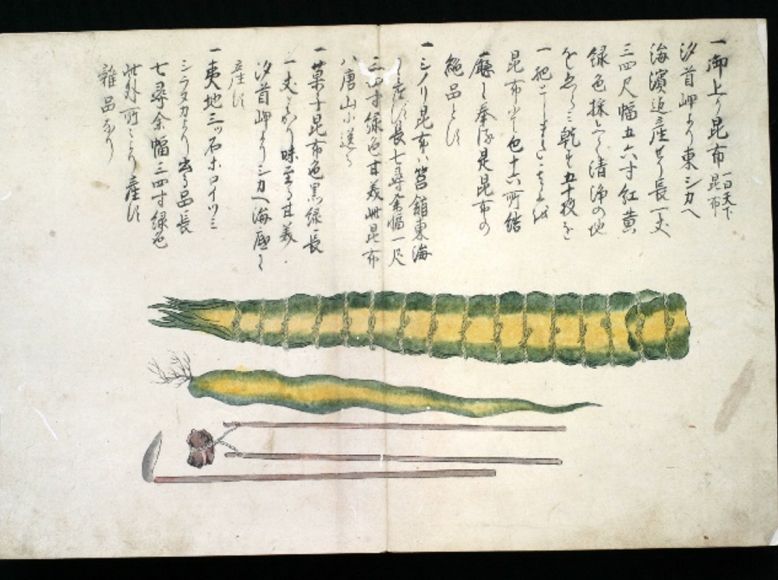 一御上り昆布 一曰天下昆布
汐首岬より東シカヘ
海濱迄産せり長一丈
三四尺幅五六寸紅黄
緑色採て清浄の地
をゑらミ乾す五十枚を
一把とし
昆布 色十六所結
廳に奉る是昆布の
絶品とす
一シノリ昆布ハ箱舘東海
に産す長七尋余幅一尺
三四寸緑色甘美此昆布
ハ唐山へ送る
一菓子昆布色黒緑長
一丈 味至 甘美
汐首岬よりシカヘ海底に
産す
一夷地三ツ石ホロイツミ
より出る品長
七尋余幅三四寸緑色
此外所々より産す
雑品なり